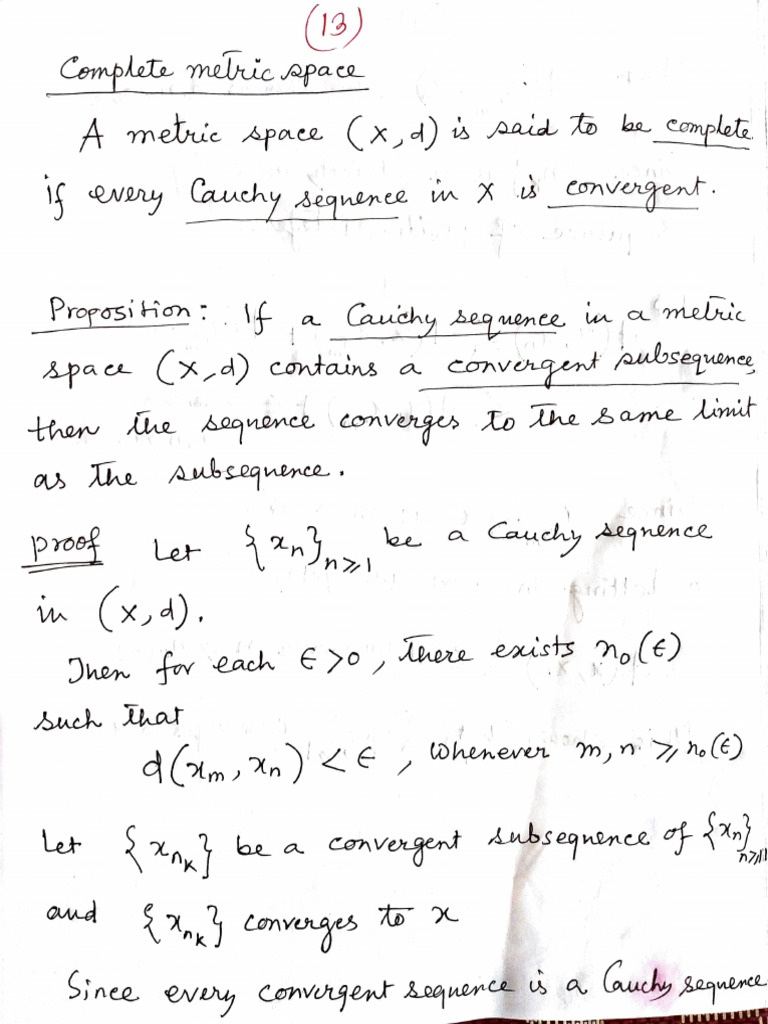 (13)
Complete metric space
A metric space (X, d) is said to be complete
if every Cauchy sequence in X is convergent.
Proposition: If a Cauchy sequence in a metric
space (X, d) contains a convergent subsequence,
then the sequence converges to the same limit
as the subsequence.
Proof Let {xₙ}ₙ≥₁ be a Cauchy sequence
in (X, d).
Then for each ϵ > 0, there exists n₀(ϵ)
such that
d(xₘ, xₙ) < ϵ, whenever m, n ≥ n₀(ϵ)
Let {xₙₖ} be a convergent subsequence of {xₙ}ₙ≥₁
and {xₙₖ} converges to x
Since every convergent sequence is a Cauchy sequence